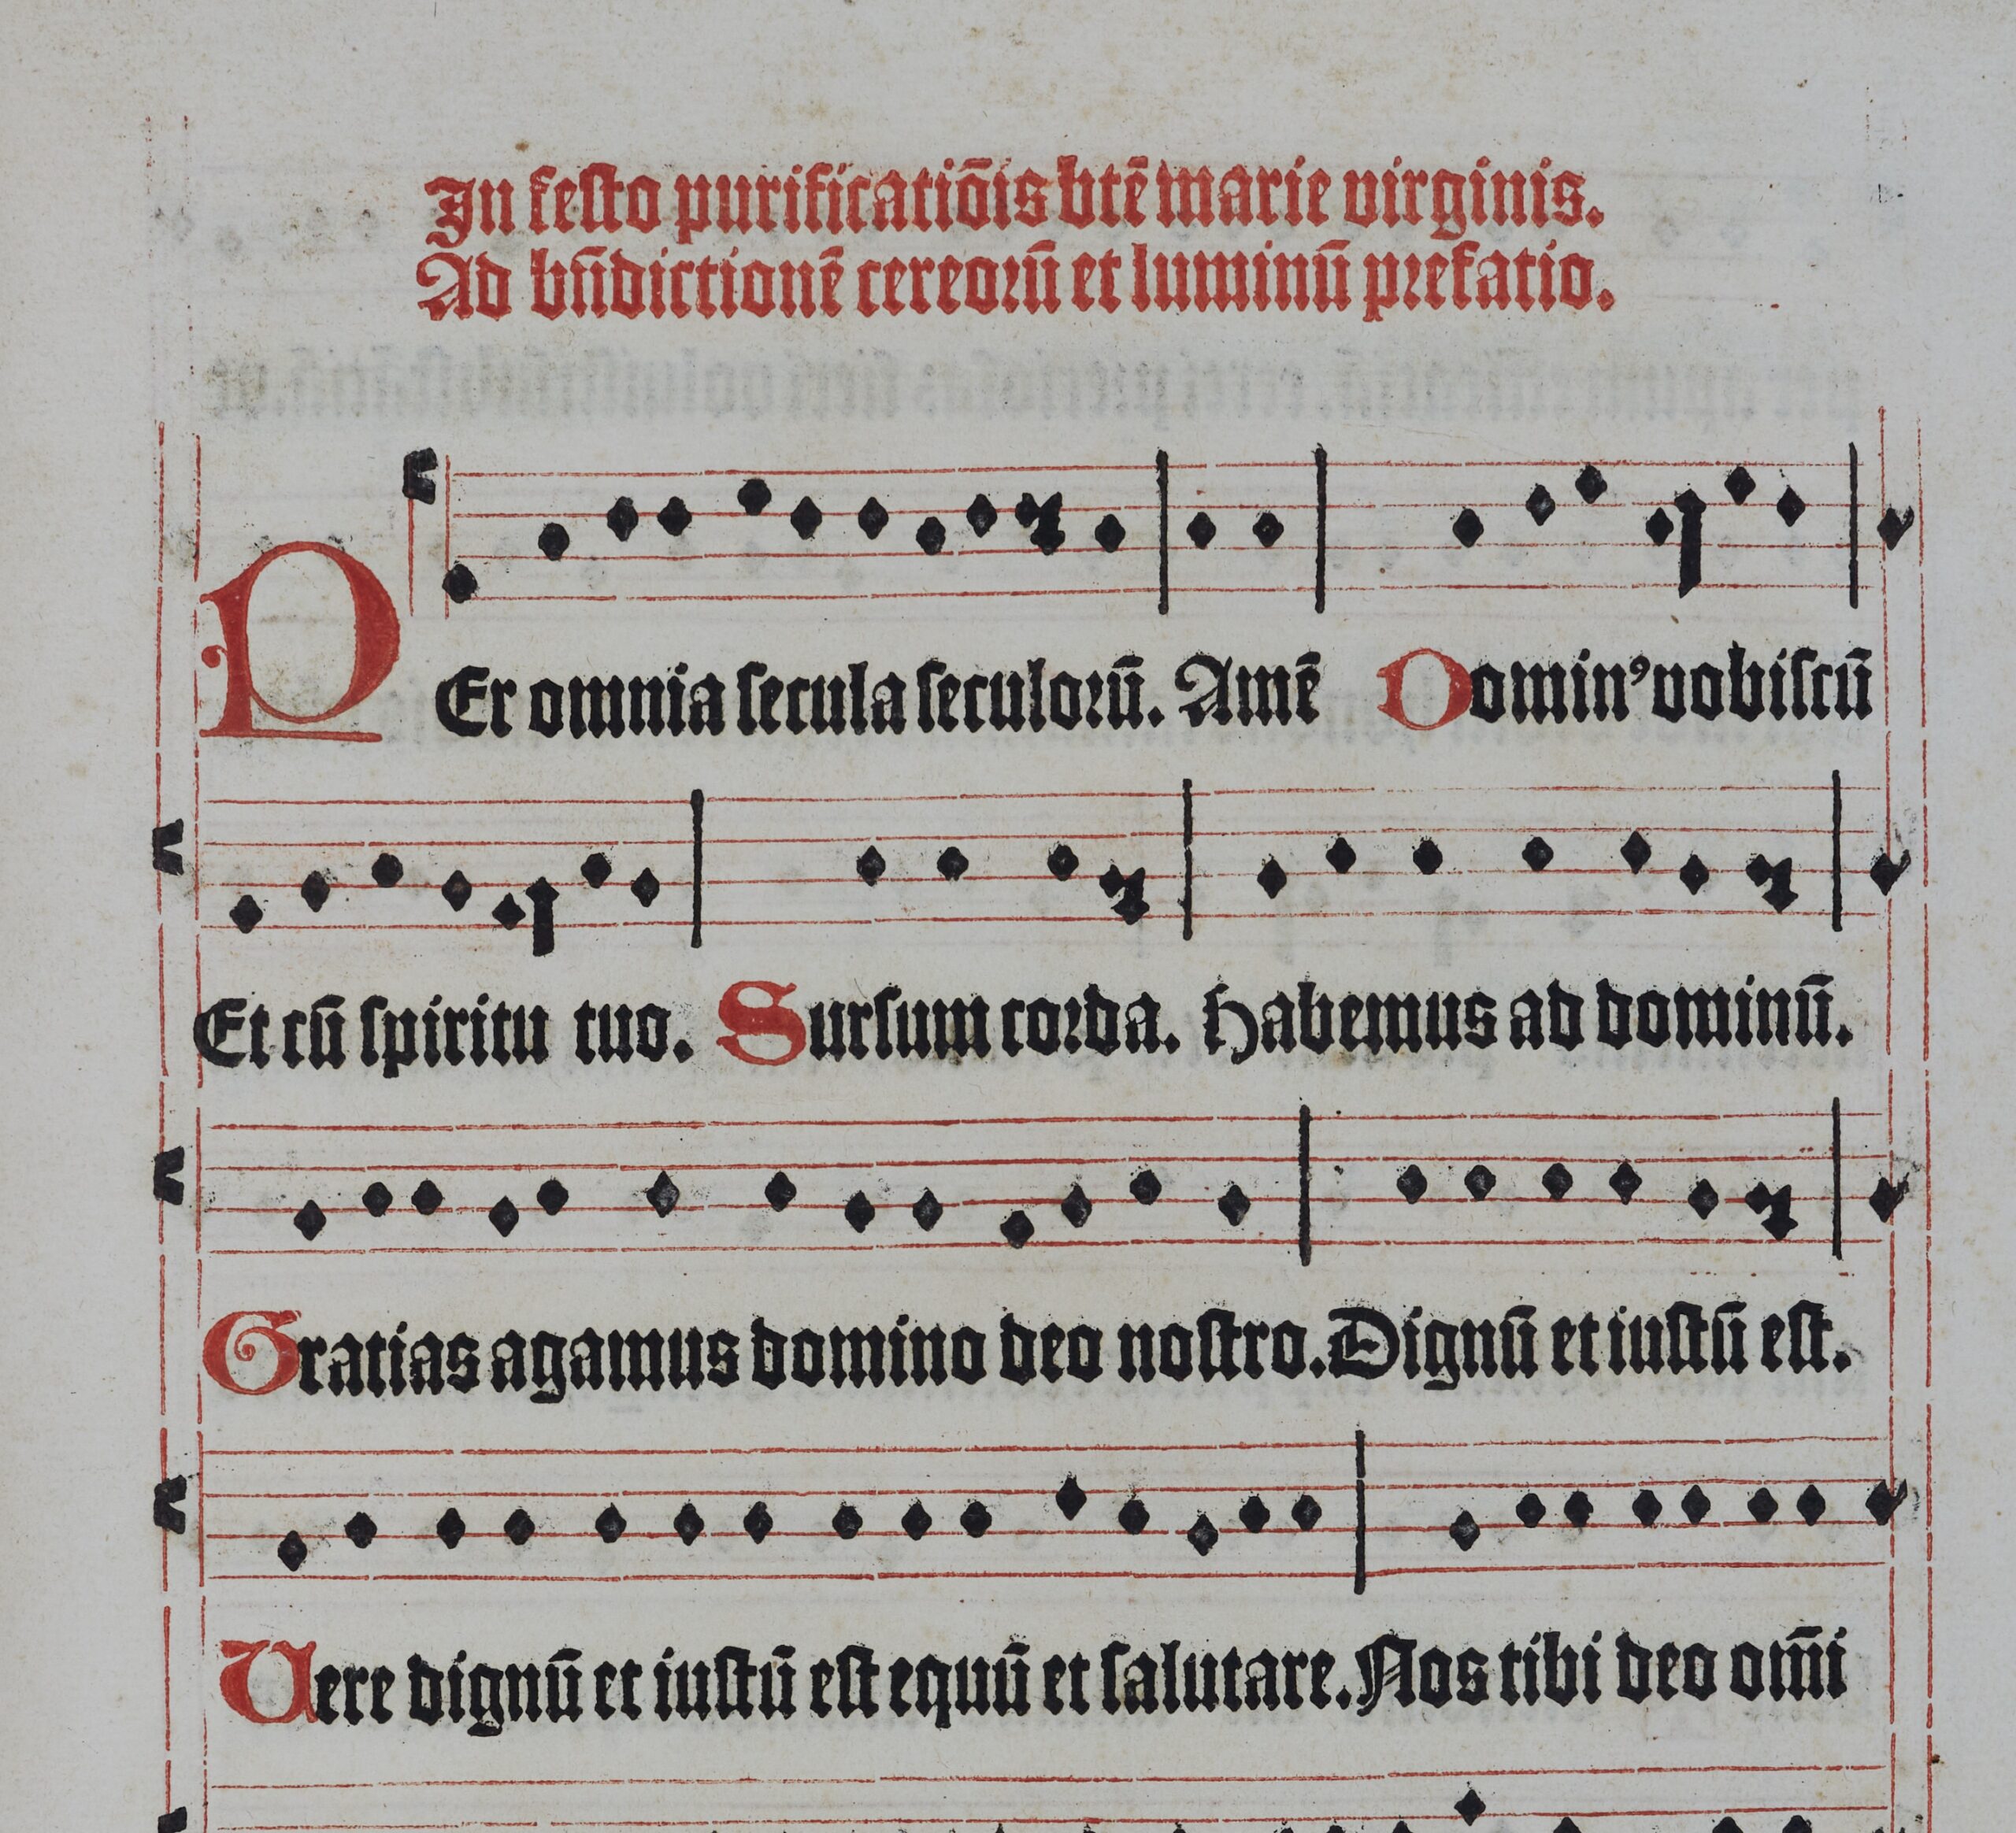 In festo purificatiōis btē marie virginis.
Ad bn̄dictionē cereorū et luminū prefatio.
PEr omnia secula seculorū. Amē Domin⁹ vobiscū
Et cū spiritu tuo. Sursum corda. Habemus ad dominū.
Gratias agamus domino deo nostro. Dignū et iustū est.
Uere dignū et iustū est equū et salutare. Nos tibi deo om̄i